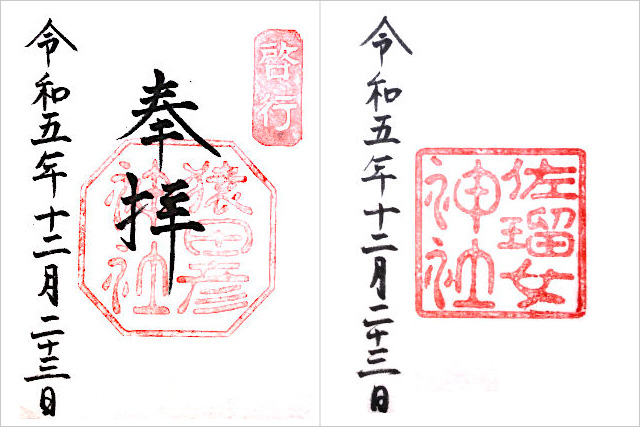 啓行
奉拝
猿田彦
神社
令和五年十二月二十三日
佐瑠女
神社
令和五年十二月二十三日